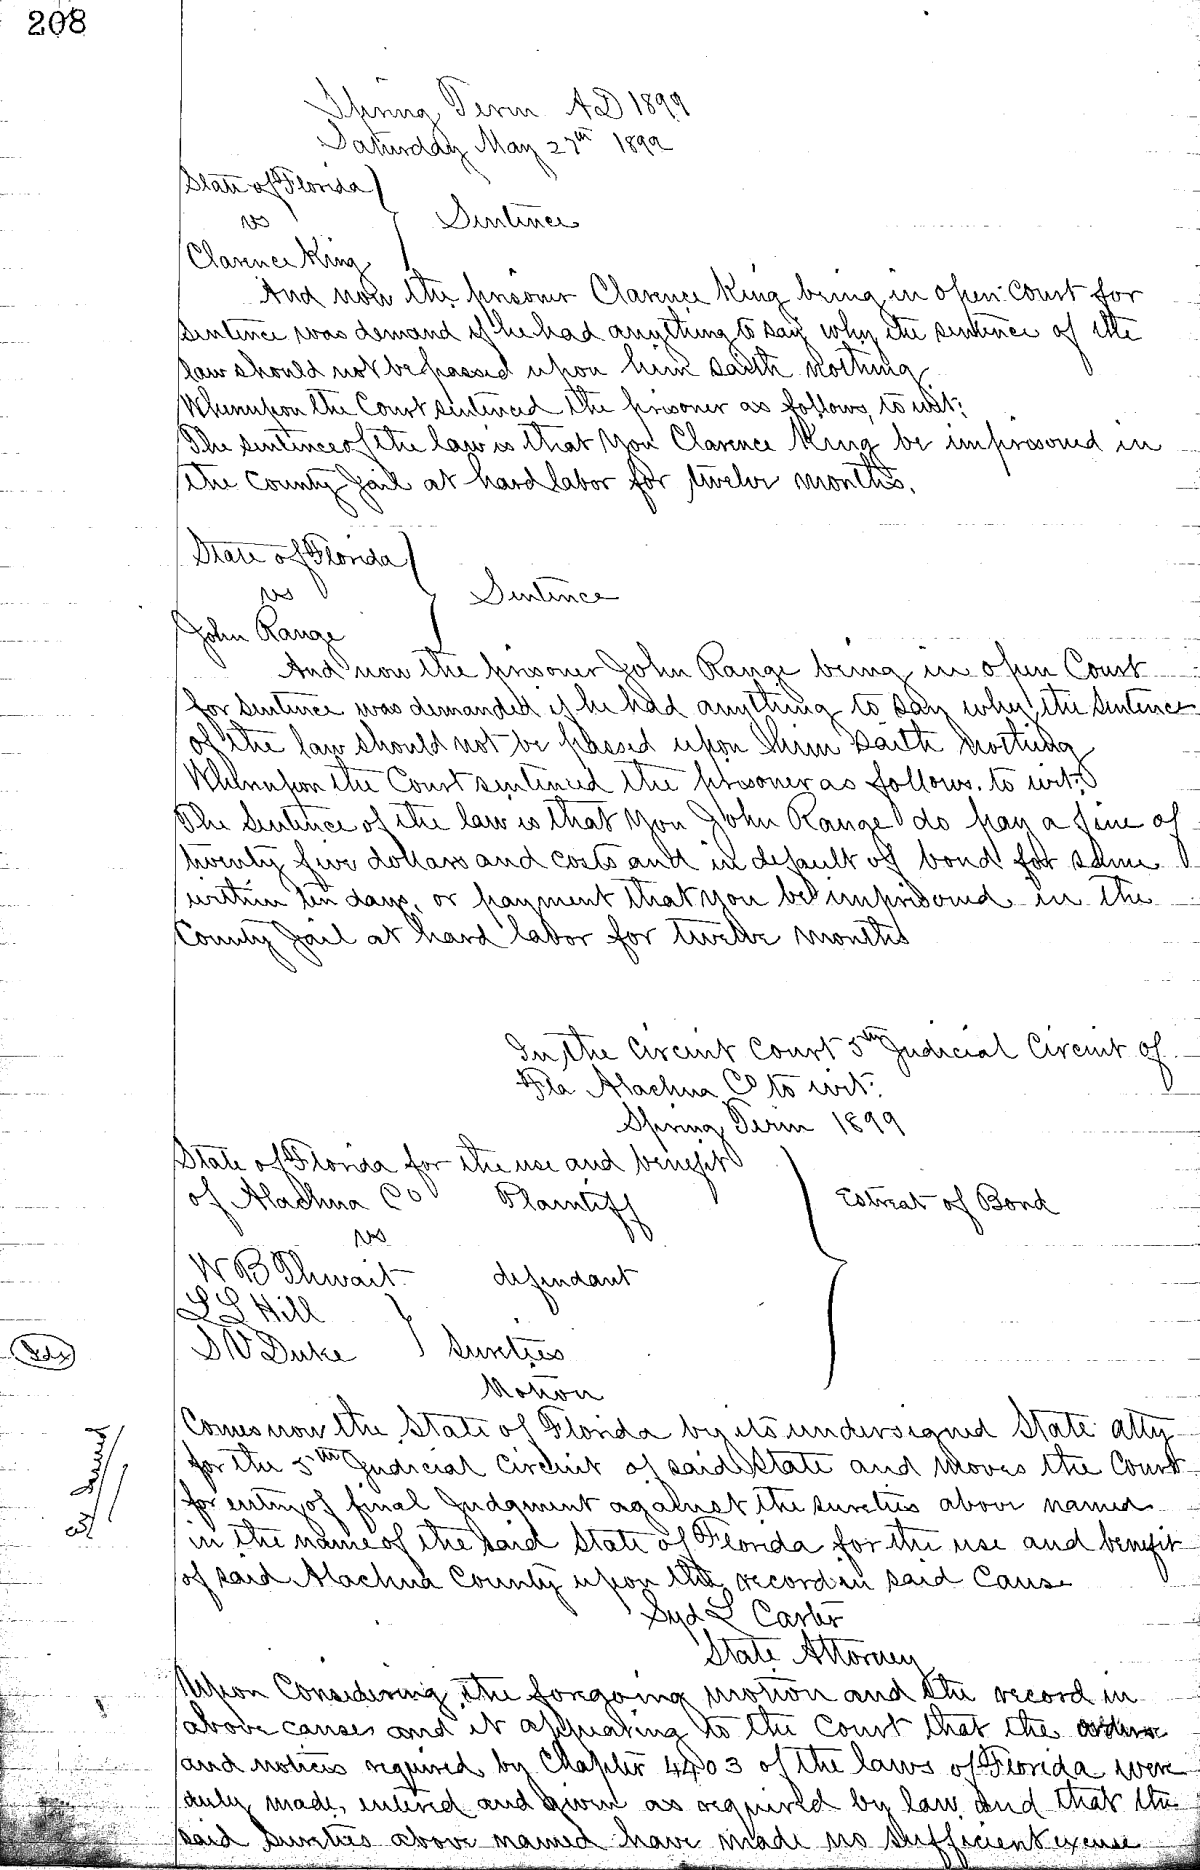 208
Spring Term AD 1899
Saturday May 27th 1899
State of Florida
vs
Sentence
Clarence King
And now the prisoner Clarence King being in open Court for
sentence was demand if he had anything to say why the sentence of the
law should not be passed upon him saith nothing
Whereupon the Court sentenced the prisoner as follows, to wit:
The sentence of the law is that you Clarence King be imprisoned in
the County Jail at hard labor for twelve months.
State of Florida
vs
Sentence
John Range
And now the prisoner John Range being in open Court
for sentence was demanded if he had anything to say why the sentence
of the law should not be passed upon him saith nothing
Whereupon the Court sentenced the prisoner as follows. to wit:
The Sentence of the law is that you John Range do pay a fine of
twenty five dollars and costs and in default of bond for same
within ten days, or payment that you be imprisoned in the
County Jail at hard labor for twelve months
In the Circuit Court 5th Judicial Circuit of
Fla Alachua Co to wit:
Spring Term 1899
State of Florida for the use and benefit
of Alachua Co Plaintiff
Estreat of Bond
vs
W B Thwait defendant
L L Hill
S V Duke Sureties
Motion
Comes now the State of Florida by its undersigned State atty
for the 5th Judicial Circuit of said State and moves the Court
for entry of final Judgment against the sureties above named
in the name of the said State of Florida for the use and benefit
of said Alachua County upon the record in said Cause
Syd L Carter
State Attorney
Upon Considering the foregoing motion and the record in
above cause and it appearing to the Court that the orders
and notices required by Chapter 4403 of the laws of Florida were
duly made, entered and given as required by law and that the
said Sureties above named have made no sufficient excuse